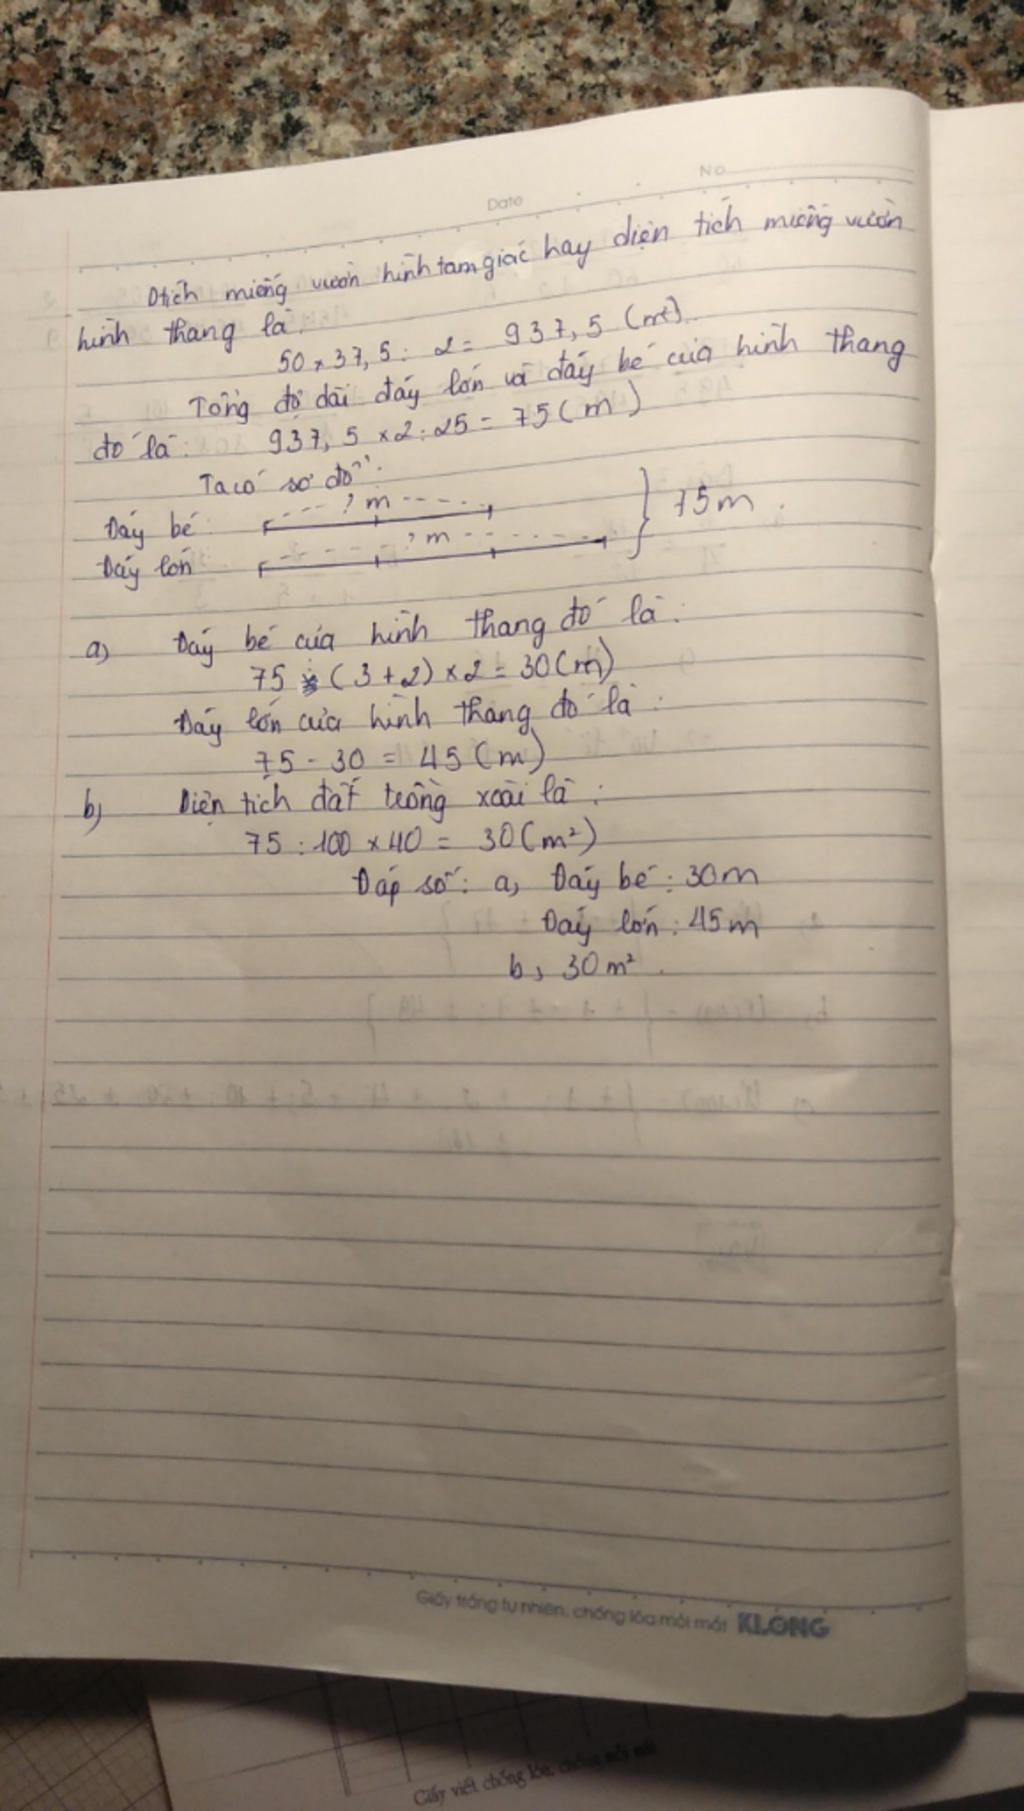 Date No
Dtích miếng vườn hình tam giác hay diện tích miếng vườn
hình thang là:
50 x 37,5 : 2 = 937,5 (m²)
Tổng độ dài đáy lớn và đáy bé của hình thang
đó là: 937,5 x 2 : 25 = 75 (m)
Ta có sơ đồ:
? m
Đáy bé
? m
Đáy lớn
75m.
a) Đáy bé của hình thang đó là:
75 : (3 + 2) x 2 = 30 (m)
Đáy lớn của hình thang đó là:
75 - 30 = 45 (m)
b) Diện tích đất trồng xoài là:
75 : 100 x 40 = 30 (m²)
Đáp số: a, Đáy bé: 30m
Đáy lớn: 45m
b, 30m².
Giấy trắng tự nhiên, chống lóa mỏi mắt KLONG
Giấy viết chống lóa, chống mỏi mắt